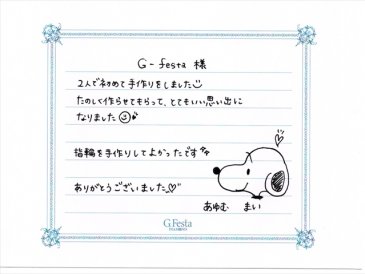 G-festa 様
2人で初めて手作りをしました
たのしく作らせてもらって、とてもいい思い出に
なりました
指輪を手作りしてよかったです
ありがとうございました♡
あゆむ まい
G.Festa